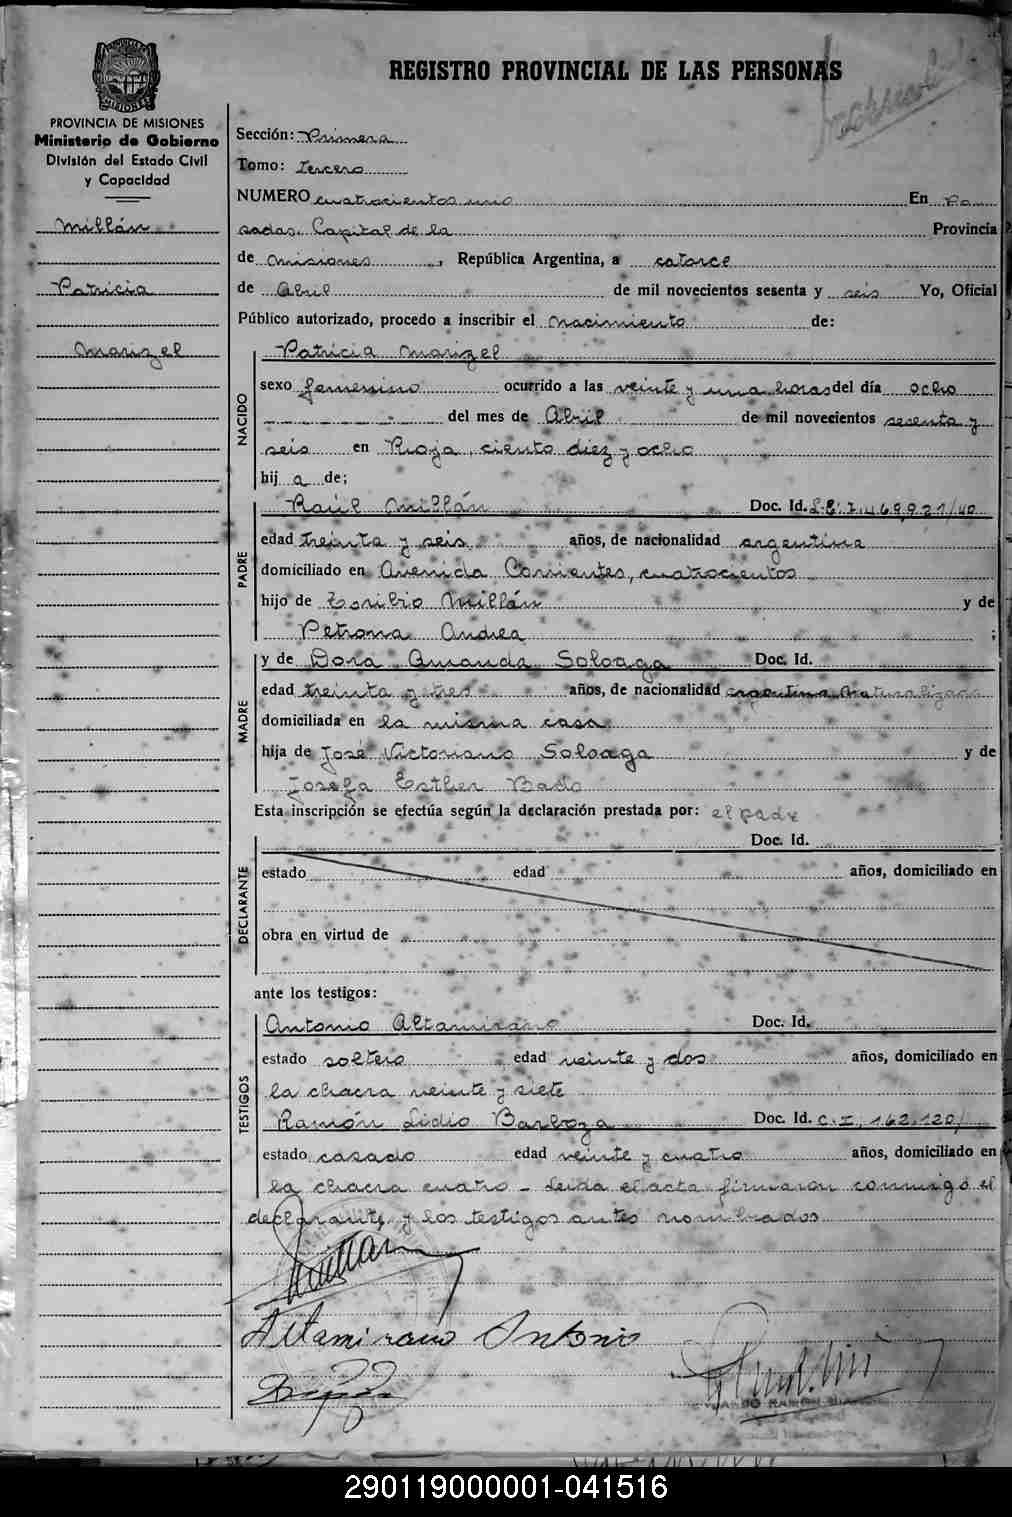 REGISTRO PROVINCIAL DE LAS PERSONAS
PROVINCIA DE MISIONES
Ministerio de Gobierno
División del Estado Civil
y Capacidad
Millán
Patricia
Marizel
Sección: Primera
Tomo: tercero
NUMERO cuatrocientos uno En Po
sadas. Capital de la Provincia
de Misiones, República Argentina, a catorce
de Abril de mil novecientos sesenta y seis Yo, Oficial
Público autorizado, procedo a inscribir el nacimiento de:
NACIDO
Patricia Marizel
sexo femenino ocurrido a las veinte y una horas del día ocho
del mes de Abril de mil novecientos sesenta y
seis en Rioja, ciento diez y ocho
hij a de;
PADRE
Raúl Millán Doc. Id.
edad treinta y seis años, de nacionalidad argentina
domiciliado en Avenida Corrientes, cuatrocientos
hijo de Toribio Millán y de
Petrona Andrea ;
MADRE
y de Dora Amanda Soloaga Doc. Id.
edad treinta y tres años, de nacionalidad argentina naturalizada
domiciliada en la misma casa
hija de José Victoriano Soloaga y de
Josefa Esther Bado
Esta inscripción se efectúa según la declaración prestada por: el padre
DECLARANTE
Doc. Id.
estado edad años, domiciliado en
obra en virtud de
ante los testigos:
TESTIGOS
Antonio Altamirano Doc. Id.
estado soltero edad veinte y dos años, domiciliado en
la chacra veinte y siete
Ramón Lidio Barboza Doc. Id. C.I. 162.120/
estado casado edad veinte y cuatro años, domiciliado en
la chacra cuatro - Leida el acta firmaron conmigo el
declarante y los testigos antes nombrados
Millan
Altamirano Antonio
290119000001-041516